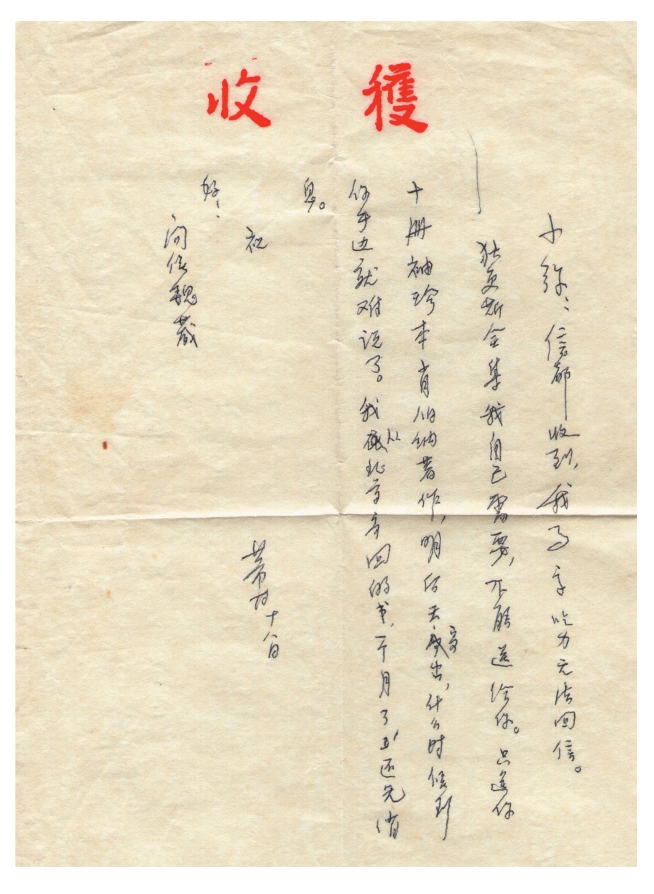 收穫
小弥:信都收到,我写字吃力无法回信。
狄更斯全集我自己需要,不能送给你。只送你
十册袖珍本肖伯纳著作,明后天寄出,什么时候到
你手边就难说了。我从北京寄回的书,一个月了还无消
息。
祝
好!
问候魏
芾甘